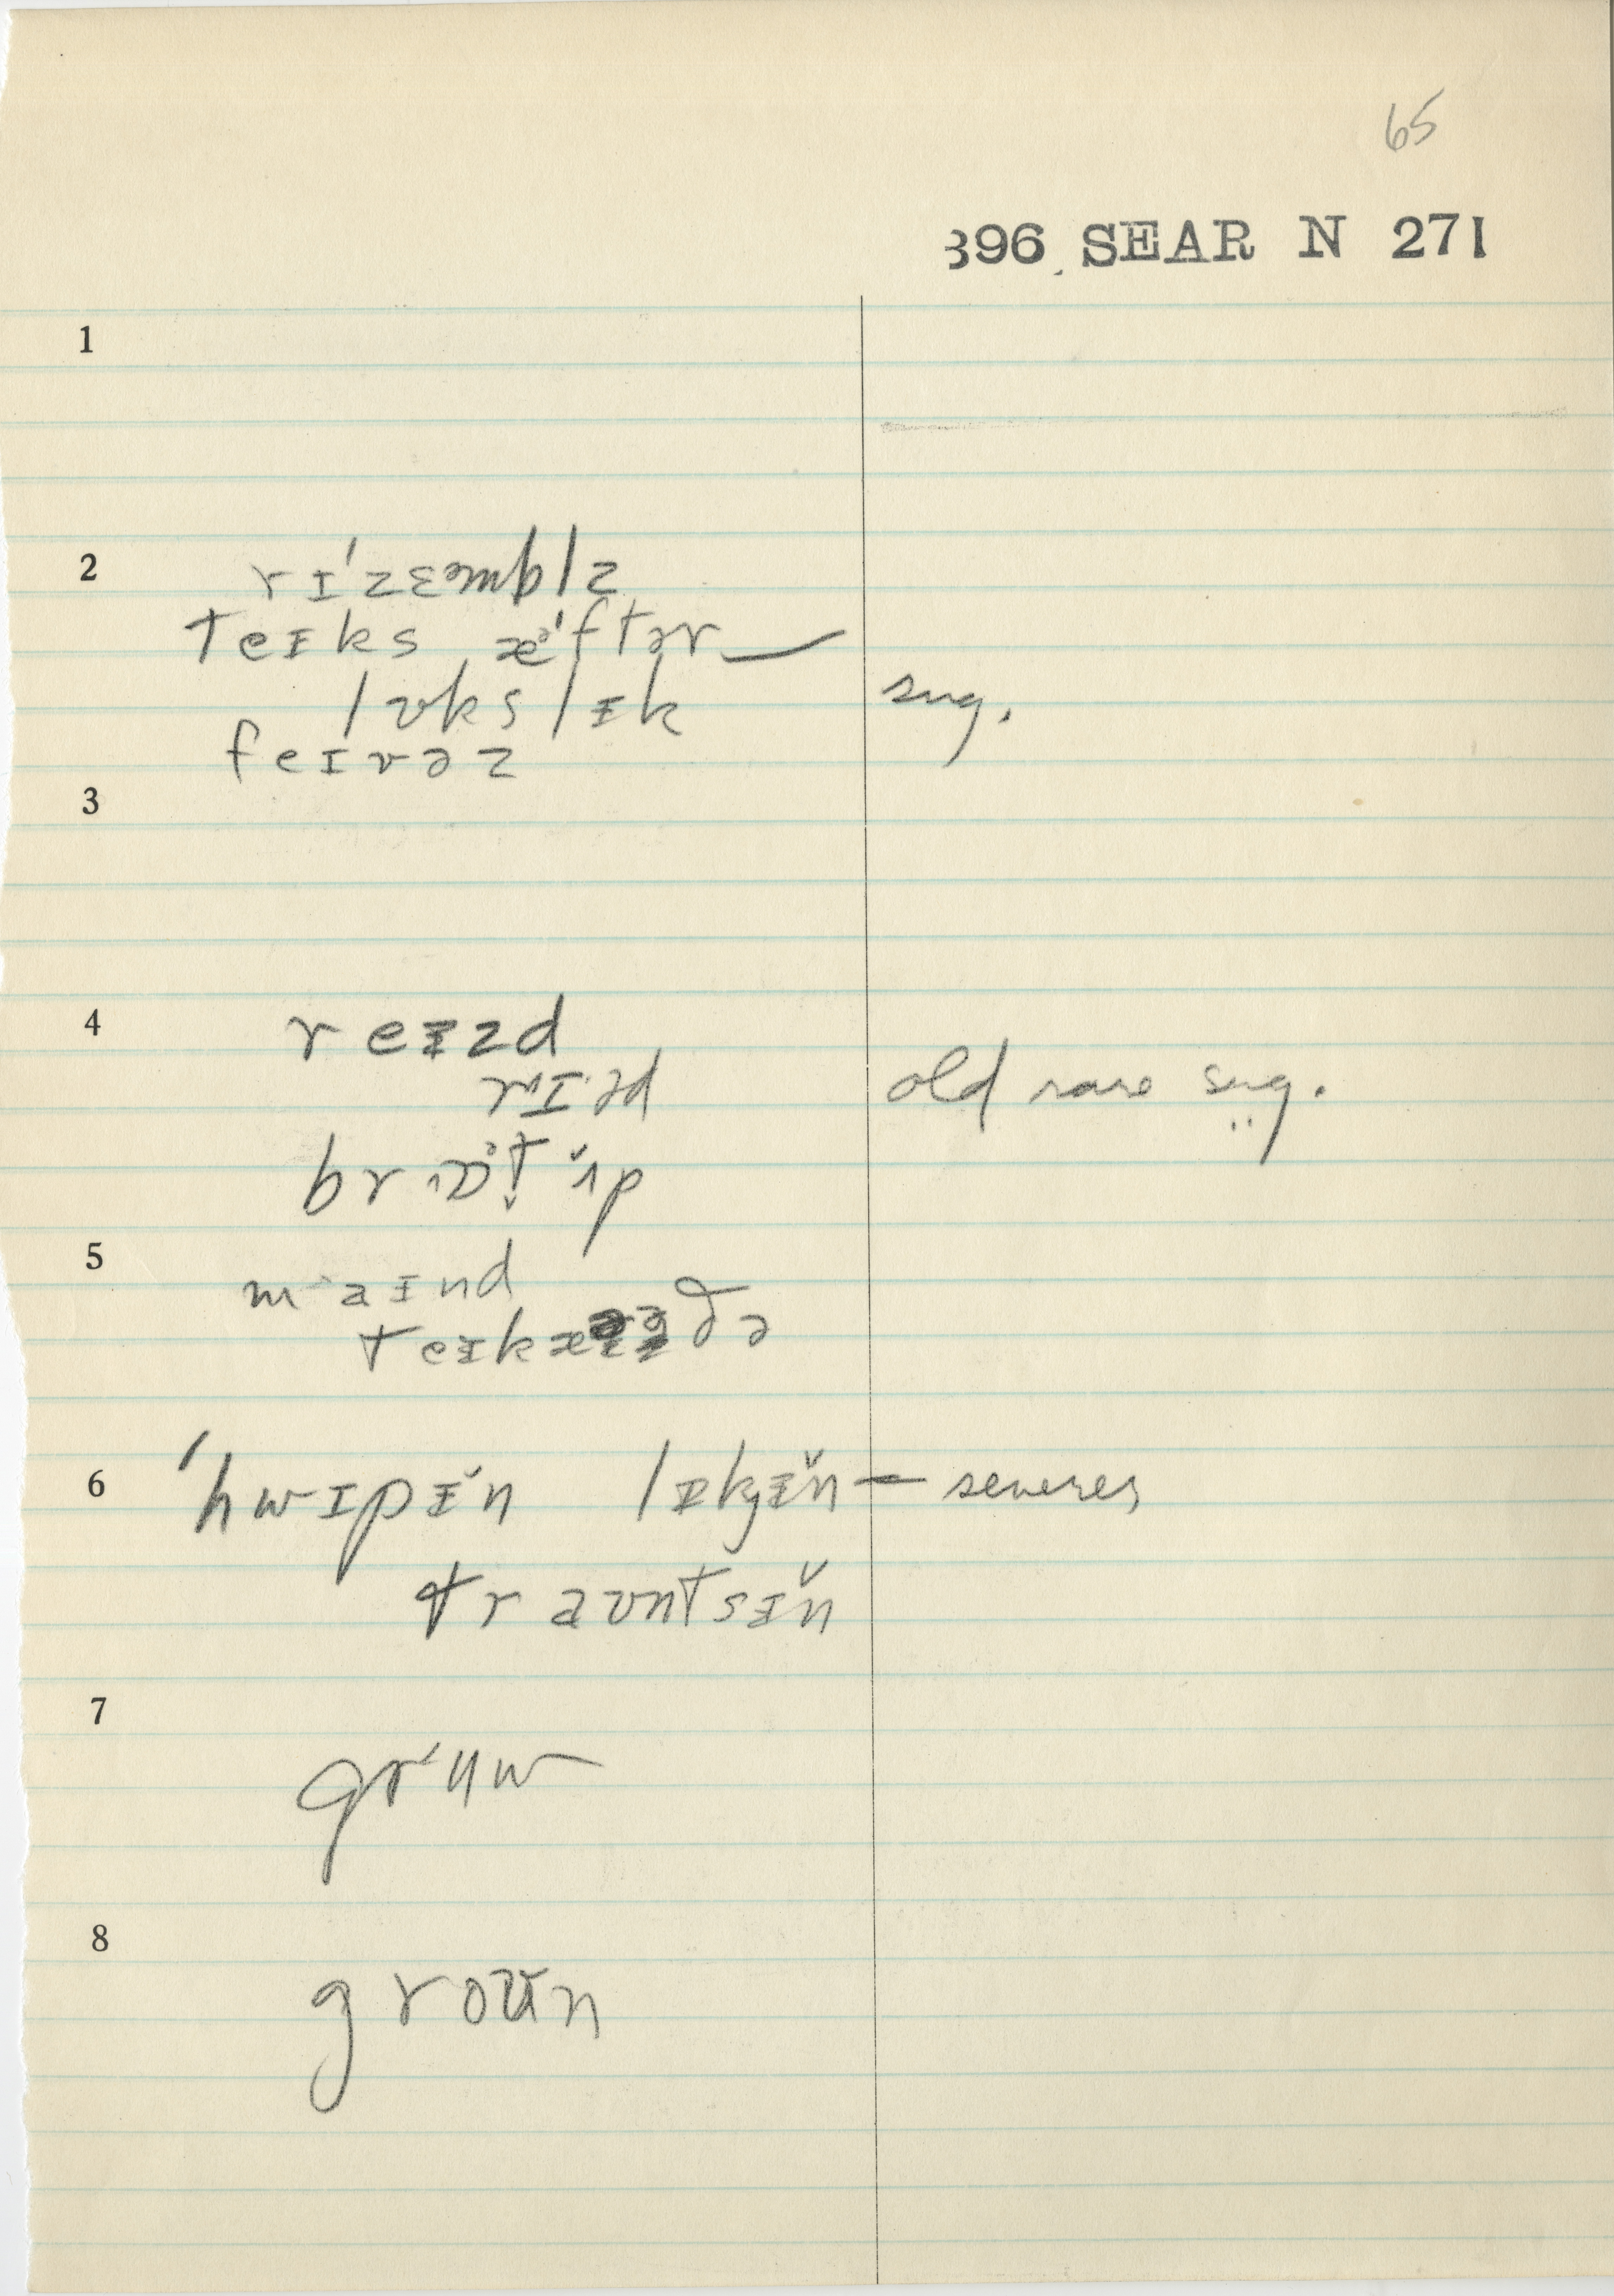 65
396 SEAR N 271
1
2
rɪˈzɛᵊmblz
teɪks æᵊˈftər
lʊks lɪk sug.
feɪvəz
3
4
reɪzd
rɪəd old rare sug.
brɔt ʌp
5
maɪnd
teɪk ðə
6
ˈhwɪpɪ̆n lɪkɪ̆n — severer
traʊntsɪ̆n
7
8
groʊ̆n